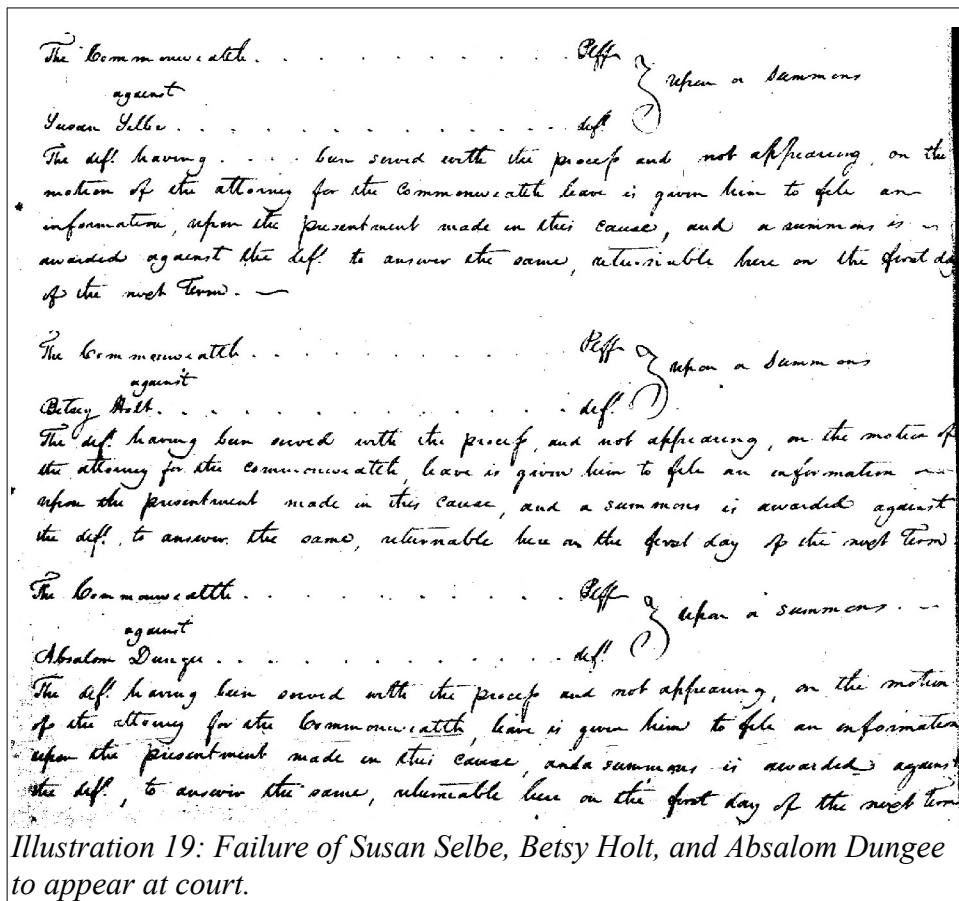 The Commonwealth . . . . . . . . . . . . . Plff
upon a Summons
against
Susan Selbe . . . . . . . . . . . . . . . deft
The deft having . . . . been served with the process and not appearing, on the
motion of the attorney for the Commonwealth leave is given him to file an
information, upon the presentment made in this cause, and a summons is —
awarded against the deft to answer the same, returnable here on the first day
of the next Term. —
The Commonwealth . . . . . . . . . . . . . Plff
upon a Summons
against
Betsey Holt . . . . . . . . . . . . . . . deft
The deft having been served with the process, and not appearing, on the motion of
the attorney for the commonwealth, leave is given him to file an information —
upon the presentment made in this cause, and a summons is awarded against
the deft, to answer the same, returnable here on the first day of the next Term
The Commonwealth . . . . . . . . . . . . . Plff
upon a summons . —
against
Absalom Dungee . . . . . . . . . . . . . deft
The deft having been served with the process and not appearing, on the motion
of the attorney for the Commonwealth, leave is given him to file an information
upon the presentment made in this cause, and a summons is awarded against
the deft, to answer the same, returneable here on the first day of the next term
Illustration 19: Failure of Susan Selbe, Betsy Holt, and Absalom Dungee
to appear at court.